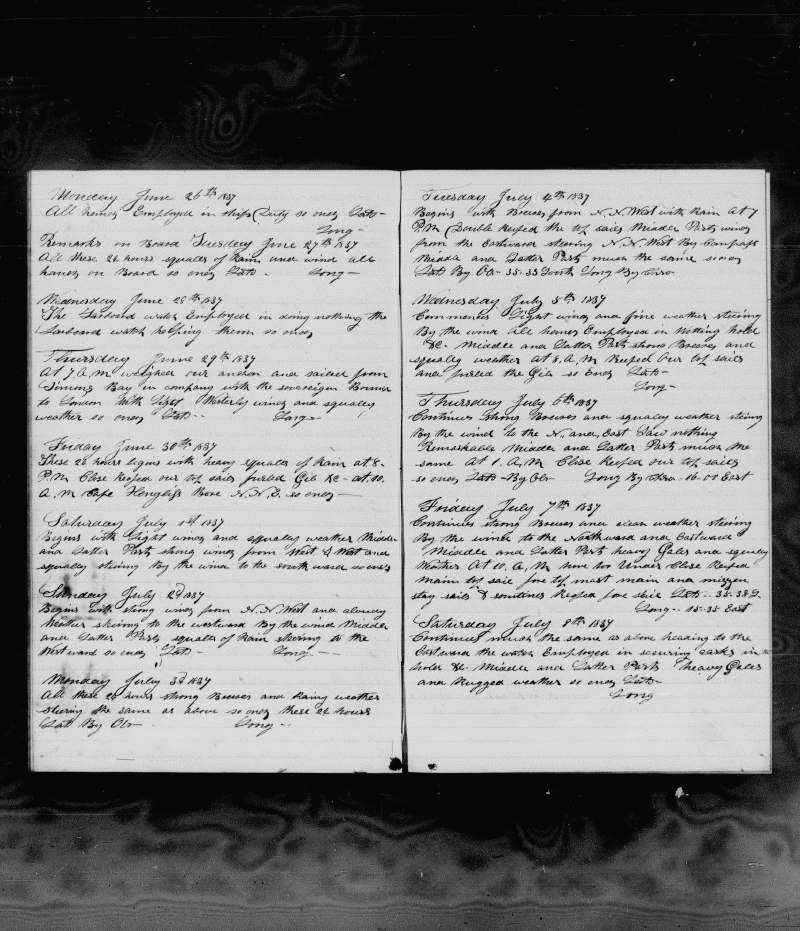 Monday June 26th 1837
All hands Employed in ships Duty so ends Lat--
Long--
Remarks on Board Tuesday June 27th 1837
All these 24 hours squales of Rain and wind all
hands on Board so ends Lat-- Long--
Wednesday June 28th 1837
The Larboard watch Employed in doing nothing the
Starboard watch helping them so ends
Thursday June 29th 1837
At 7 A.M weighed our anchor and sailed from
Simons Bay in company with the sovereign Bound
to London With Light Westerly winds and squally
weather so ends Lat-- Long--
Friday June 30th 1837
These 24 hours begins with heavy squales of Rain at 8-
P.M Close Reefed our top sails furled Gib &c- at 10.
A.M Cape Hanglip Bore N.N.E. so ends--
Saturday July 1st 1837
Begins with Light winds and squally weather Middle
and Latter Parts strong winds from West & West and
squally steering By the wind to the south ward so ends
Sunday July 2d 1837
Begins with strong winds from N.N.West and cloudy
Weather steering to the westward By the wind Middle
and Latter Parts squales of Rain steering to the
West ward so ends Lat-- Long--
Monday July 3d 1837
All these 24 hours strong Breeses and Rainy weather
steering the same as above so ends these 24 hours
Lat By Ob-- Long--
Tuesday July 4th 1837
Begins with Breeses from N.N.West with Rain At 7
P.M Double Reefed the top sails Middle Parts winds
from the Eastward steering N.N.West By Compass
Middle and Latter Parts much the same so ends
Lat By Ob- 35-33 South Long By Chro
Wednesday July 5th 1837
Commences Light winds and fine weather steering
By the wind All hands Employed in Wetting hold
&c- Middle and Latter Parts strong Breeses and
squally weather at 8.A.M Reefed Our top sails
and furled the Gib so Ends Lat--
Long--
Thursday July 6th 1837
Continues strong Breeses and squally weather steering
By the wind to the N. and East Saw nothing
Remarkable Middle and Latter Parts much the
same At 1.A.M Close Reefed our top sails
so ends Lat-By Ob- Long By Chro- 16-00 East
Friday July 7th 1837
Continues strong Breeses and clear weather steering
By the wind to the Northward and Eastward
Middle and Latter Parts heavy Gales and squally
Weather At 10.A.M hove too Under Close Reefed
Main top sail fore top mast main and mizzen
stay sails & sometimes Reefed fore sail Lat- 35-38 S.
Long- 15-35 East
Saturday July 8th 1837
Continues much the same as above heading to the
Eastward the watch Employed in securing casks in the
hold &c- Middle and Latter Parts heavy Gales
and Rugged weather so ends Lat--
Long